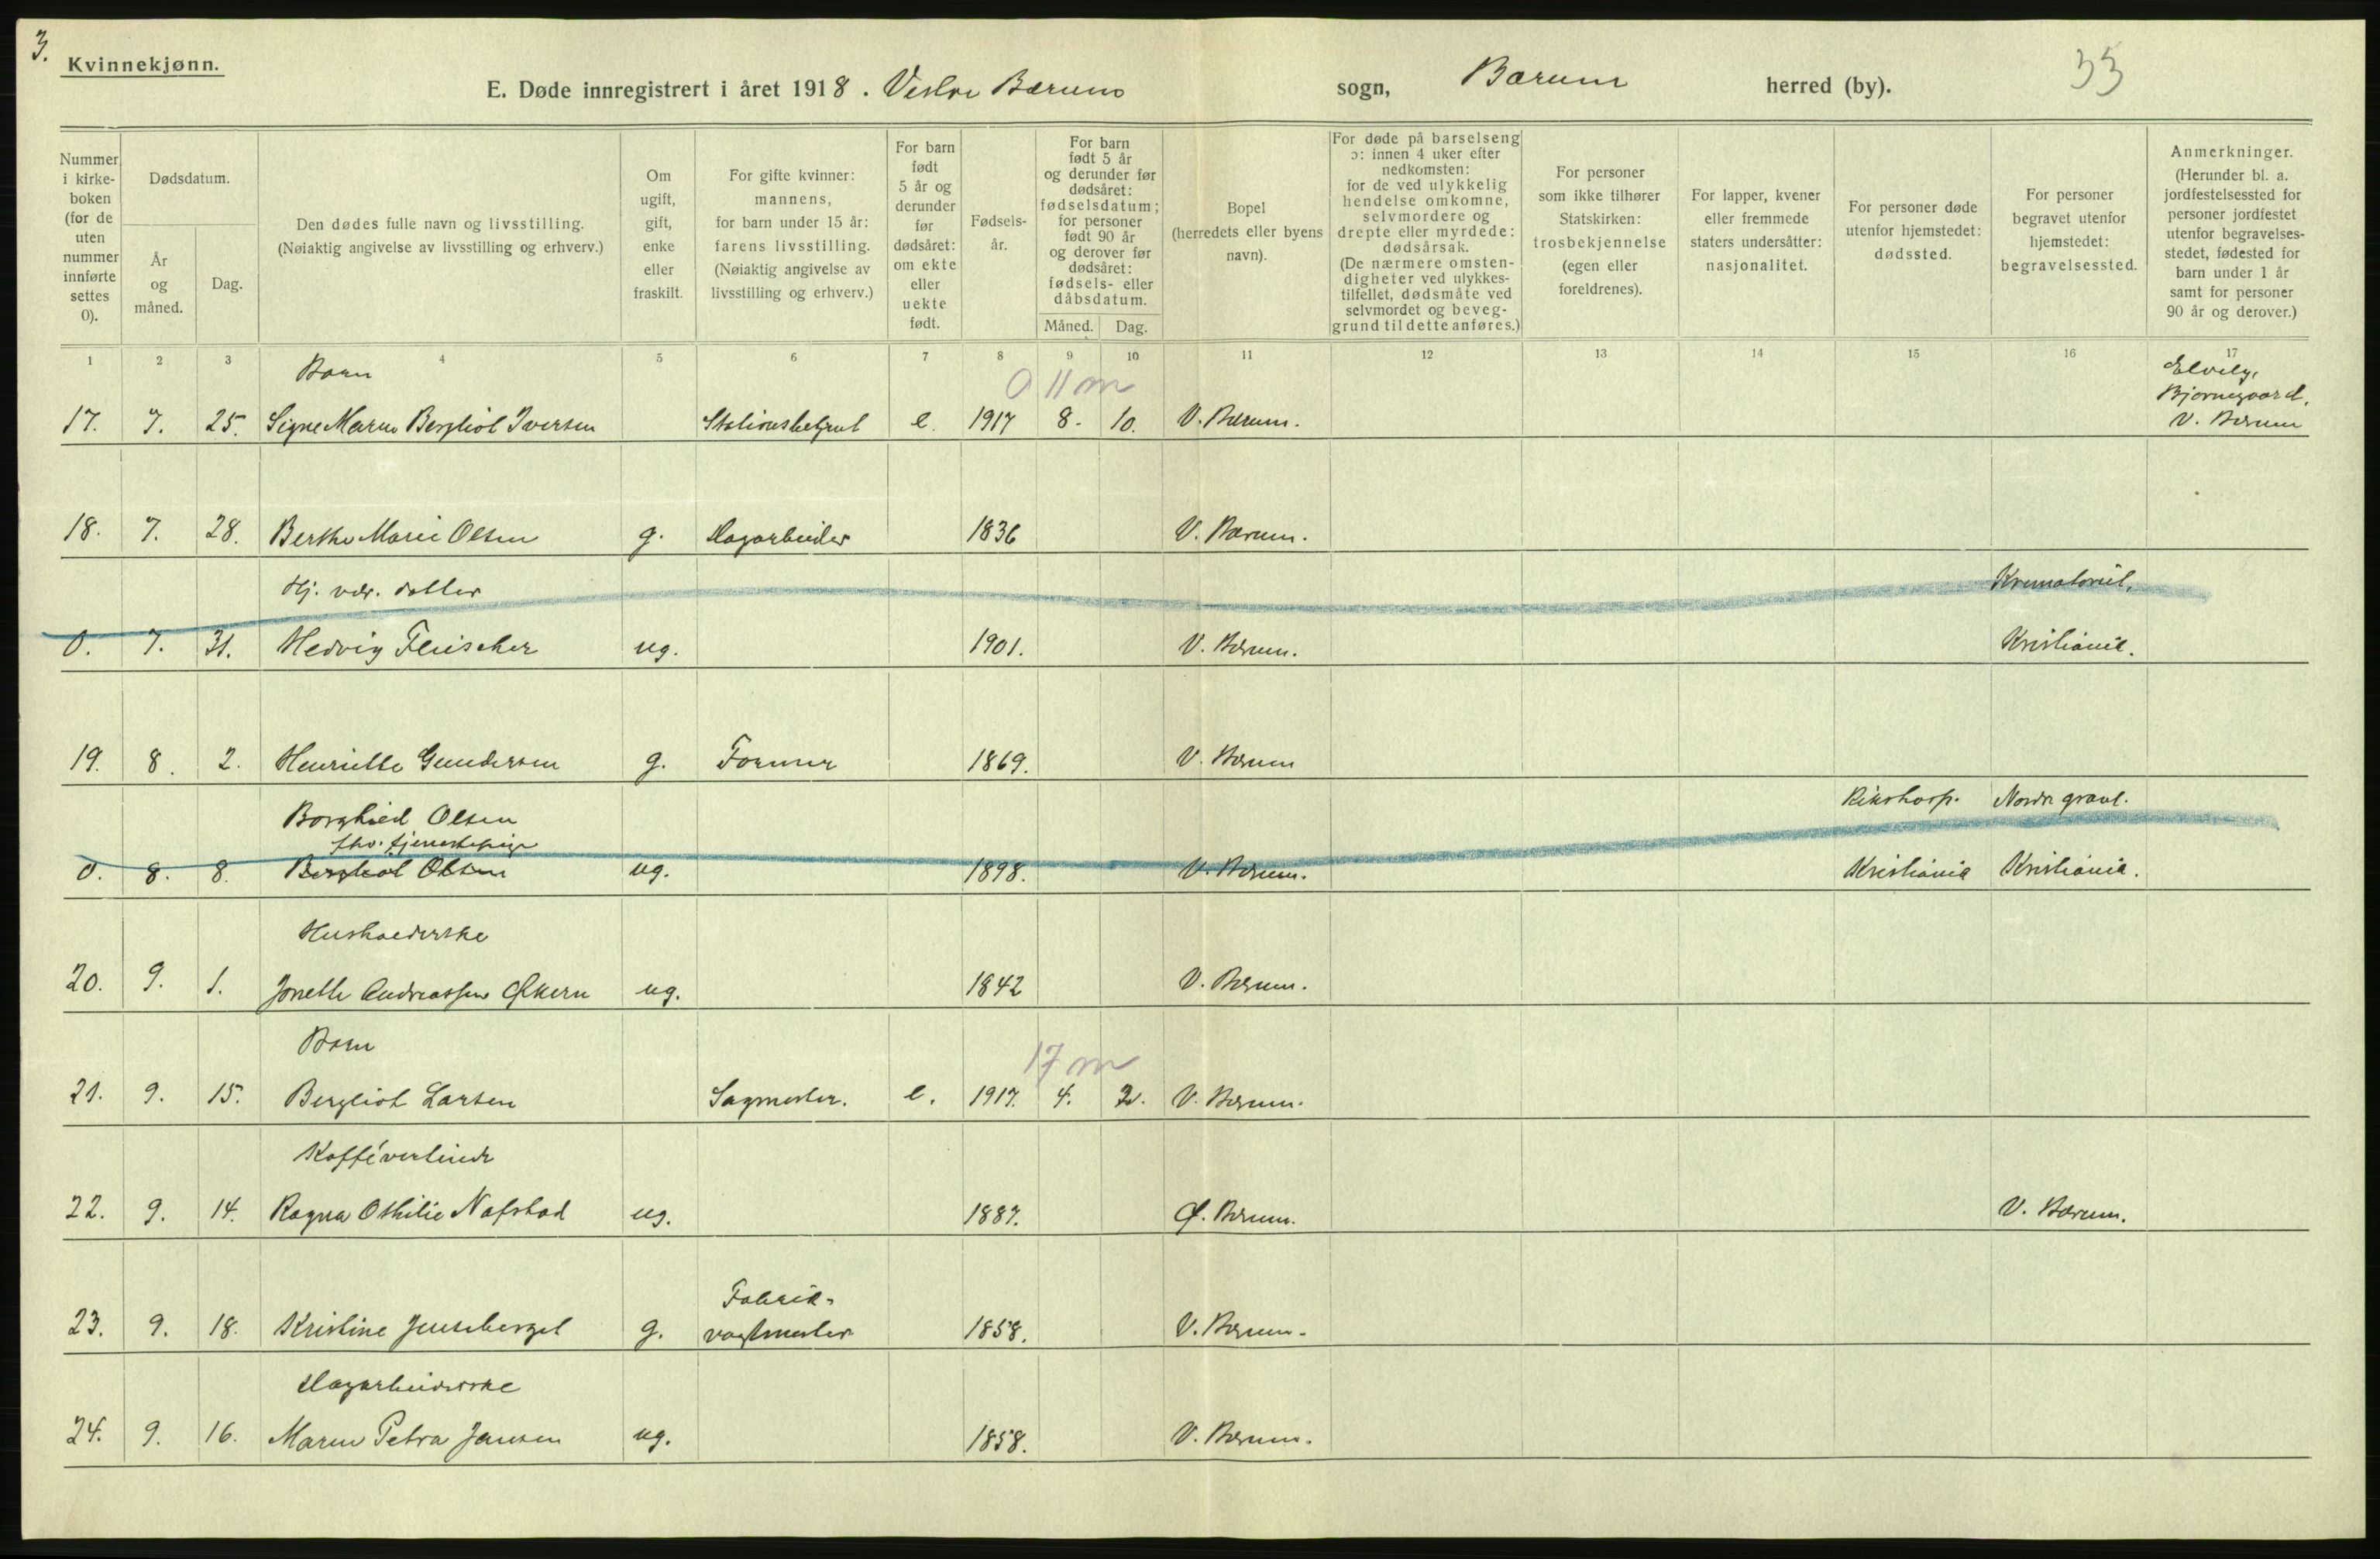 3.
Kvinnekjønn.
E. Døde innregistrert i året 1918. Vestre Bærums sogn, Bærum herred (by). 33
Nummer i kirkeboken (for de uten nummer innførte settes 0).
Dødsdatum.
År og måned.
Dag.
Den dødes fulle navn og livsstilling.
(Nøiaktig angivelse av livsstilling og erhverv.)
Om ugift, gift, enke eller fraskilt.
For gifte kvinner: mannens, for barn under 15 år: farens livsstilling. (Nøiaktig angivelse av livsstilling og erhverv.)
For barn født 5 år og derunder før dødsåret: om ekte eller uekte født.
Fødselsår.
For barn født 5 år og derunder før dødsåret: fødselsdatum; for personer født 90 år og derover før dødsåret: fødsels- eller dåbsdatum.
Måned. Dag.
Bopel (herredets eller byens navn).
For døde på barselseng ɔ: innen 4 uker efter nedkomsten: for de ved ulykkelig hendelse omkomne, selvmordere og drepte eller myrdede: dødsårsak. (De nærmere omstendigheter ved ulykkestilfellet, dødsmåte ved selvmordet og beveggrund til dette anføres.)
For personer som ikke tilhører Statskirken: trosbekjennelse (egen eller foreldrenes).
For lapper, kvener eller fremmede staters undersåtter: nasjonalitet.
For personer døde utenfor hjemstedet: dødssted.
For personer begravet utenfor hjemstedet: begravelsessted.
Anmerkninger. (Herunder bl. a. jordfestelsessted for personer jordfestet utenfor begravelsesstedet, fødested for barn under 1 år samt for personer 90 år og derover.)
1 2 3 4 5 6 7 8 9 10 11 12 13 14 15 16 17
Barn 0 11 m
Bjørnegaard,
17. 7. 25. Signe Marie Bergliot Iversen Stationsbetjent e. 1917 8. 10. V. Bærum. V. Bærum
18. 7. 28. Berthe Marie Olsen g. Dagarbeider 1836 V. Bærum.
Hj. vær. datter Krematoriet,
0. 7. 31. Hedvig Fleischer ug. 1901. V. Bærum. Kristiania.
19. 8. 2. Henriette Gundersen g. Former 1869. V. Bærum
Borghild Olsen Rikshosp. Nordre gravl.
fhv. tjenestepige
0. 8. 8. Bergliot Olsen ug. 1898. V. Bærum. Kristiania Kristiania.
Husholderske
20. 9. 1. Jonette Andreassen Økern ug. 1842 V. Bærum.
Barn 17 m
21. 9. 15. Bergliot Larsen Sagmester. e. 1917. 4. 2. V. Bærum.
Kaffévertinde
22. 9. 14. Ragna Othilie Nafstad ug. 1887. Ø. Bærum. V. Bærum.
Fabrik-
23. 9. 18. Kristine Jensberget g. vagtmester 1858. V. Bærum.
Dagarbeiderske
24. 9. 16. Maren Petra Jensen ug. 1858. V. Bærum.